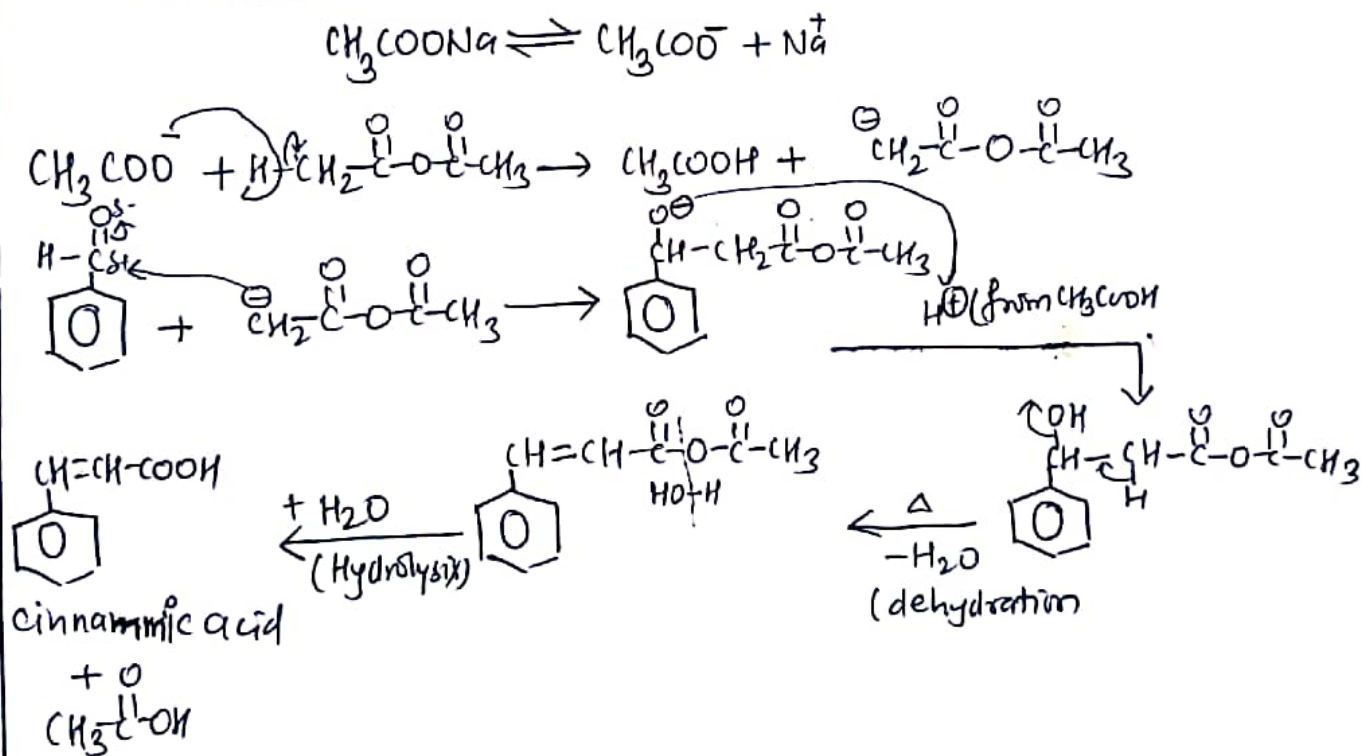 CH₃COONa ⇌ CH₃COO⁻ + Na⁺
CH₃COO⁻ + H-CH₂-C(=O)-O-C(=O)-CH₃ → CH₃COOH + ⊖CH₂-C(=O)-O-C(=O)-CH₃
H-C(=O) δ- δ+ + ⊖CH₂-C(=O)-O-C(=O)-CH₃ → O⊖ CH-CH₂-C(=O)-O-C(=O)-CH₃
H⊕(from CH₃COOH
OH CH-CH-C(=O)-O-C(=O)-CH₃
H
Δ
-H₂O
(dehydration
CH=CH-C(=O)-O-C(=O)-CH₃
HO-H
+ H₂O
(Hydrolysis)
CH=CH-COOH
cinnammic acid
+
CH₃-C(=O)-OH